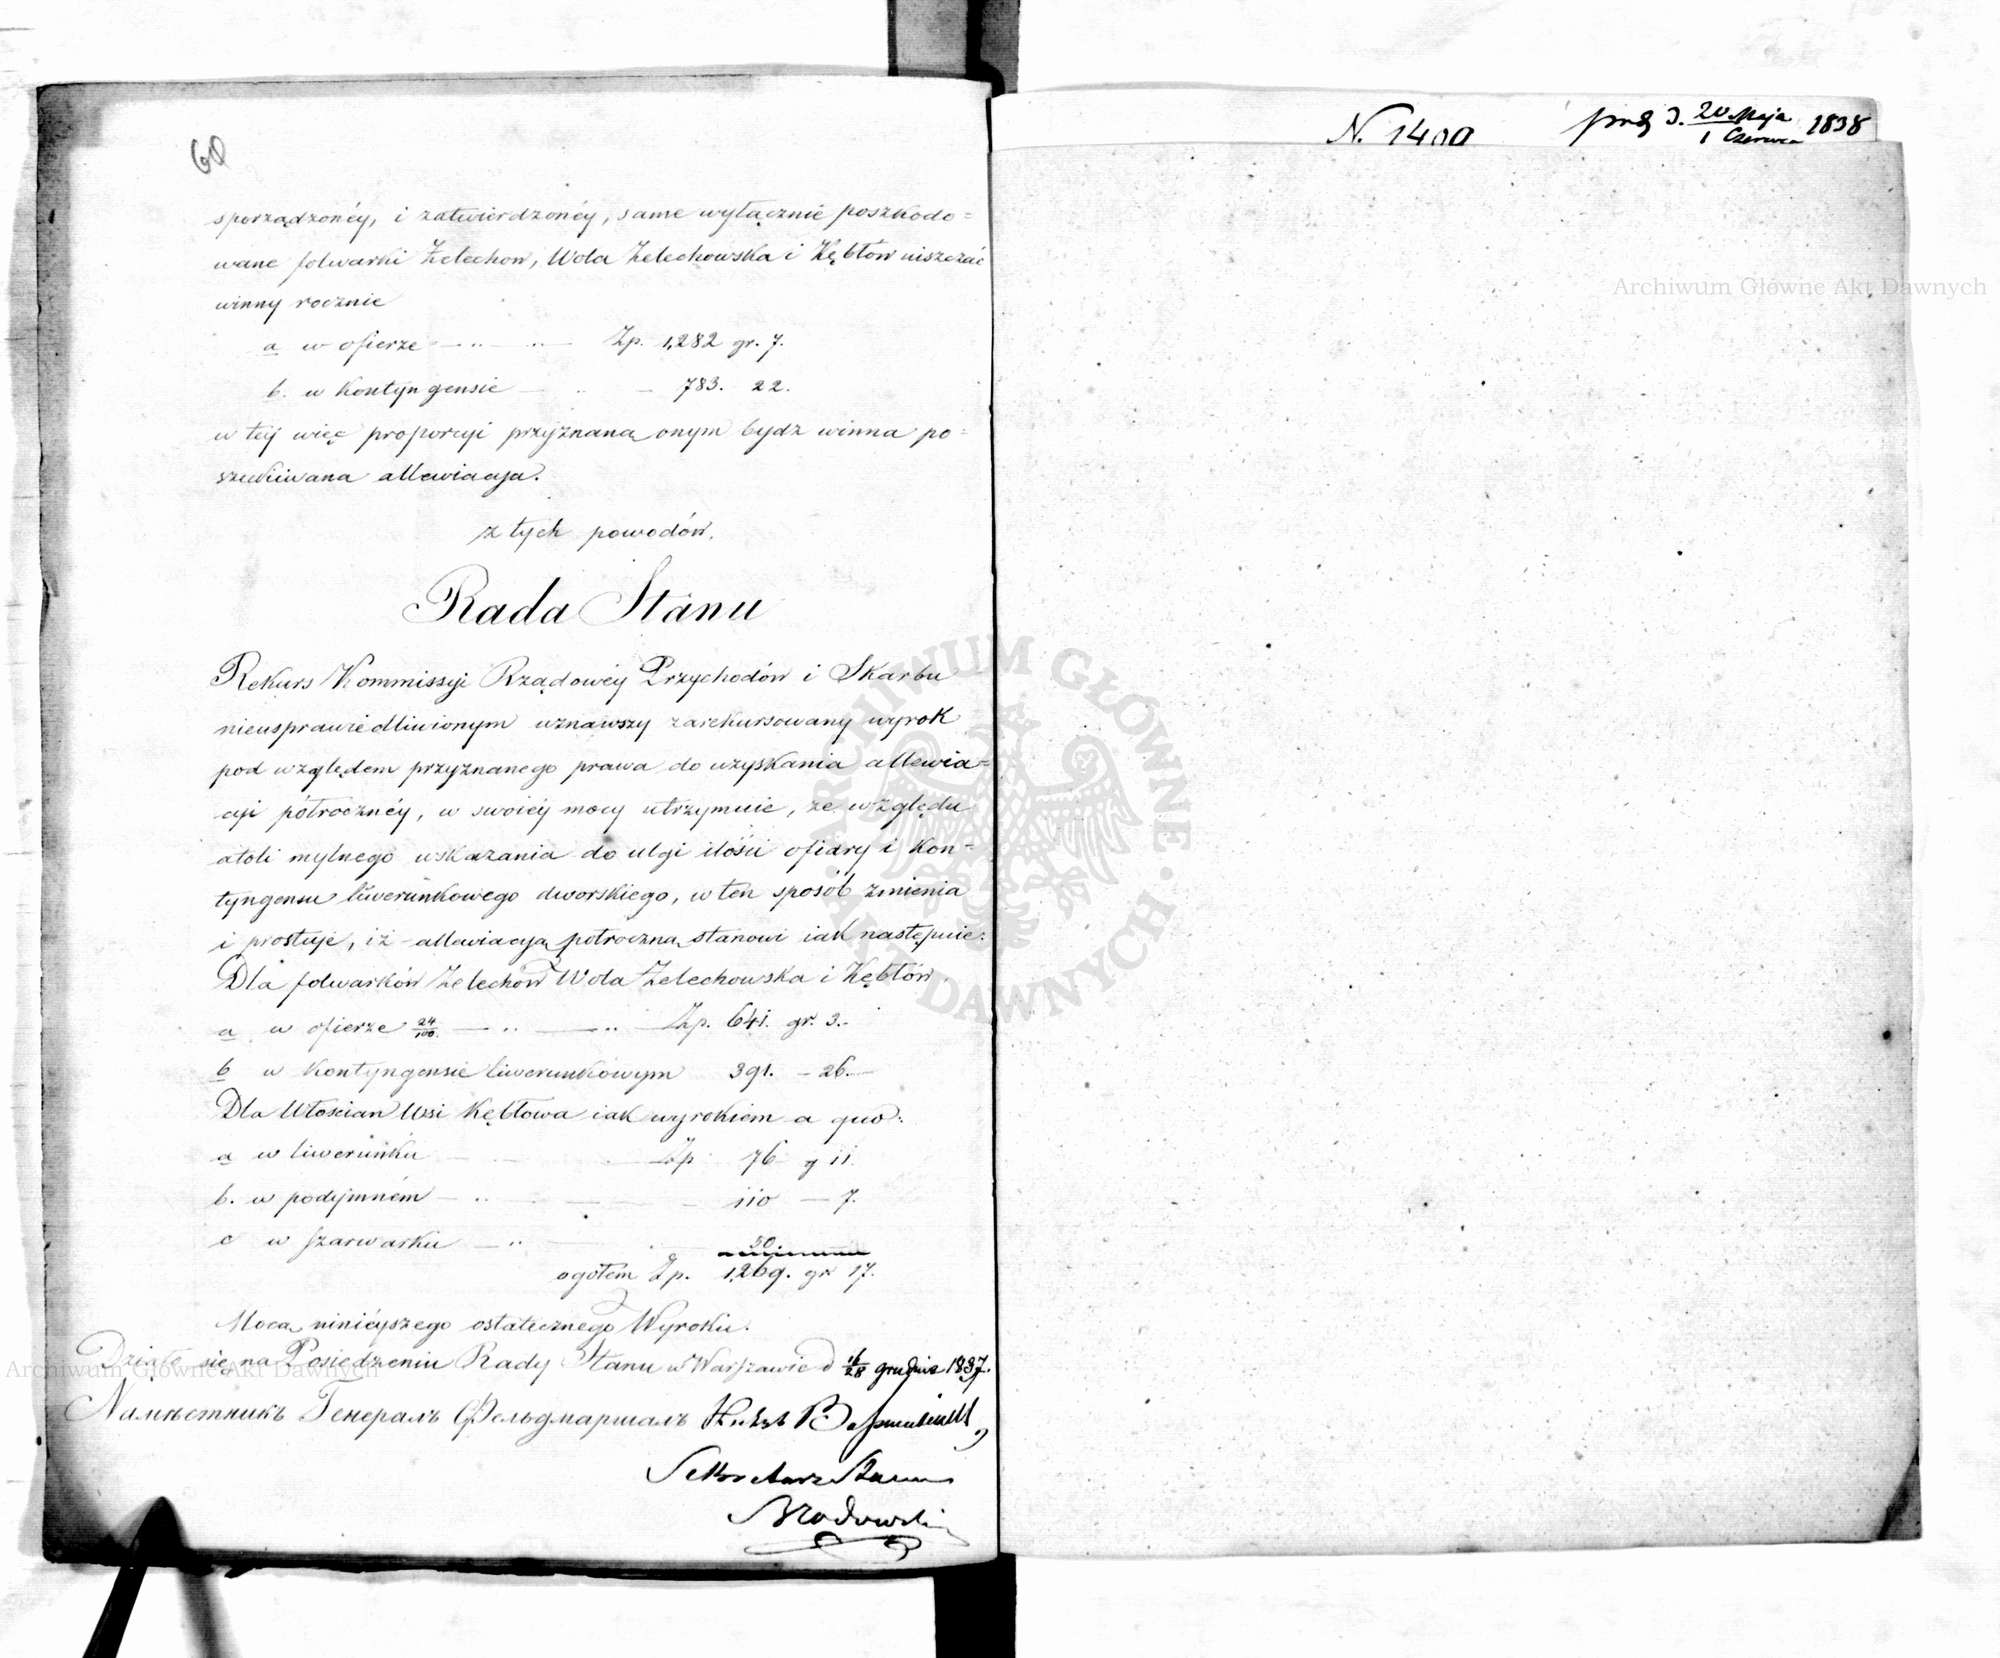 60
sporządzonéy, i zatwierdzonéy, same wyłącznie poszkodo=
wane folwarki Żelechow, Wola Żelechowska i Kębłów uiszczać
winny rocznie
a w ofierze — .. .. — Zp. 1,282 gr. 7.
b. w kontyngensie — .. — 783. 22.
w téy więc proporcyi przyznaną onym bydz winna po=
szukiwana allewiacya.
z tych powodów.
Rada Stanu
Rekurs Kommissyi Rządowéy Przychodów i Skarbu
nieusprawiedliwionym uznawszy zarekursowany wyrok
pod względem przyznanego prawa do uzyskania allewia=
cyi półrocznéy, w swoiéy mocy utrzymuie, ze względu
atoli mylnego wskazania do ulgi ilości ofiary i kon=
tyngensu liwerunkowego dworskiego, w ten sposób zmienia
i prostuje, iż allewiacyą półroczną stanowi iak następuie:
Dla folwarków Żelechów Wola Żelechowska i Kębłów.
a w ofierze 24/100. — .. — .. — Zp. 641. gr. 3.-
b w kontyngensie liwerunkowym 391. — 26.—
Dla Włościan Wsi Kębłowa iak wyrokiem a quo:
a w liwerunku — Zp 76 g 11.
b. w podymném — .. — — 110 — 7.
c w szarwarku — .. — 50
ogółem Zp. 1,269. gr 17.
Mocą ninieyszego ostatecznego Wyroku.
Działo się na Posiedzeniu Rady Stanu w Warszawie d 16/28 grudnia 1837.
Намѣстникъ Генералъ Фельдмаршалъ
Sekretarz Stanu
N. 1400 prez d. 20 Maja / 1 Czerwca 1838
Archiwum Główne Akt Dawnych
Archiwum Główne Akt Dawnych
ARCHIWUM GŁÓWNE AKT DAWNYCH